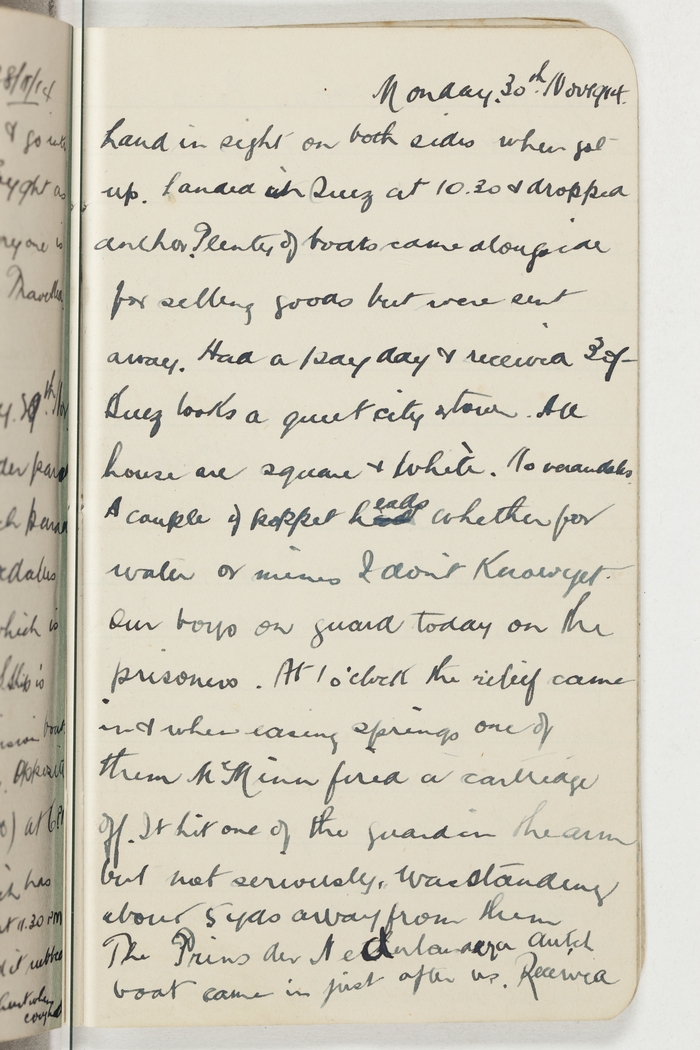 8/11/14
& go
is
Monday. 30th Nov 1914.
Land in sight on both sides when got
up. Landed in Suez at 10.30 & dropped
anchor. Plenty of boats came alongside
for selling goods but were sent
away. Had a pay day & received 30/-
Suez looks a quiet city & town. All
house are square & white. No verandahs.
A couple of poppet heads whether for
water or mines I don't know yet.
Our boys on guard today on the
prisoners. At 1 o'clock the relief came
in & when easing springs one of
them McMinn fired a cartridge
off. It hit one of the guard in the arm
but not seriously. Was standing
about 5 yds away from them
The Prins der Nederlanden a dutch
boat came in just after us. Received
which is
at 11.30 PM